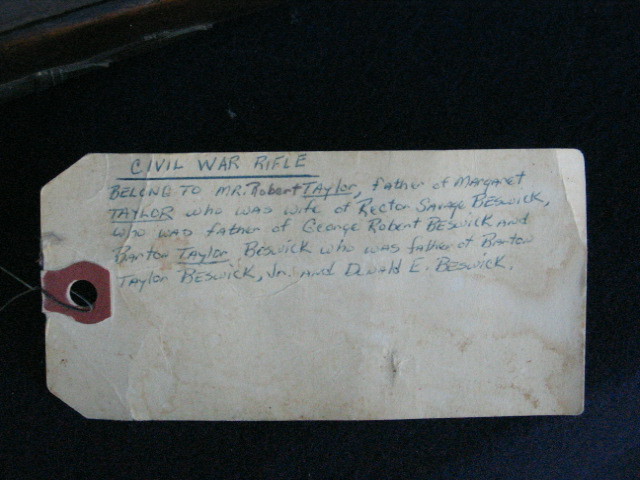 CIVIL WAR RIFLE
BELONG TO MR. Robert TAylor, father of Margaret
TAYLOR who was wife of Rector Savage BESWICK,
who was father of George Robert BESWICK AND
Barton Taylor Beswick who was father of Barton
Taylor BESWICK, Jr. and Donald E. BESWICK.